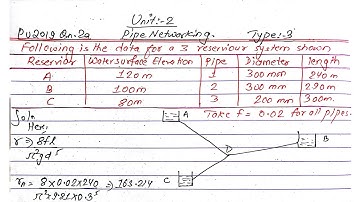 Unit:-2
PU2019 Qn.2a Pipe Networking. Type:-3
Following is the data for a 3 reservoiur system shown
Reservoir Watersurface Elevation Pipe Diameter length
A 120m 1 300mm 240m
B 100m 2 300mm 230m
C 80m 3 200mm 300m.
Soln Take f = 0.02 for all pipes.
Here,
r ⇒ 8fl
π²gd⁵
r₁ = 8×0.02×240 ⇒ 163.214
π²×9.81×0.3⁵
A
B
D
C